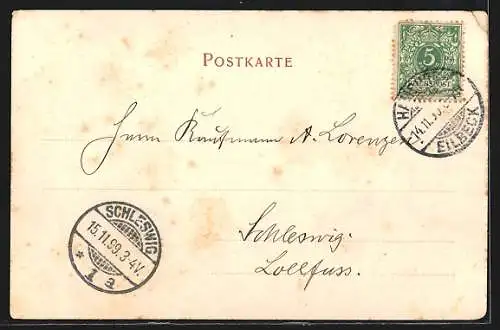 POSTKARTE
5
HAMBURG
14.11.99
EILBECK
Herrn Kaufmann A. Lorenzen
SCHLESWIG
15.11.99.3-4V.
* 1 a
Schleswig.
Lollfuss.